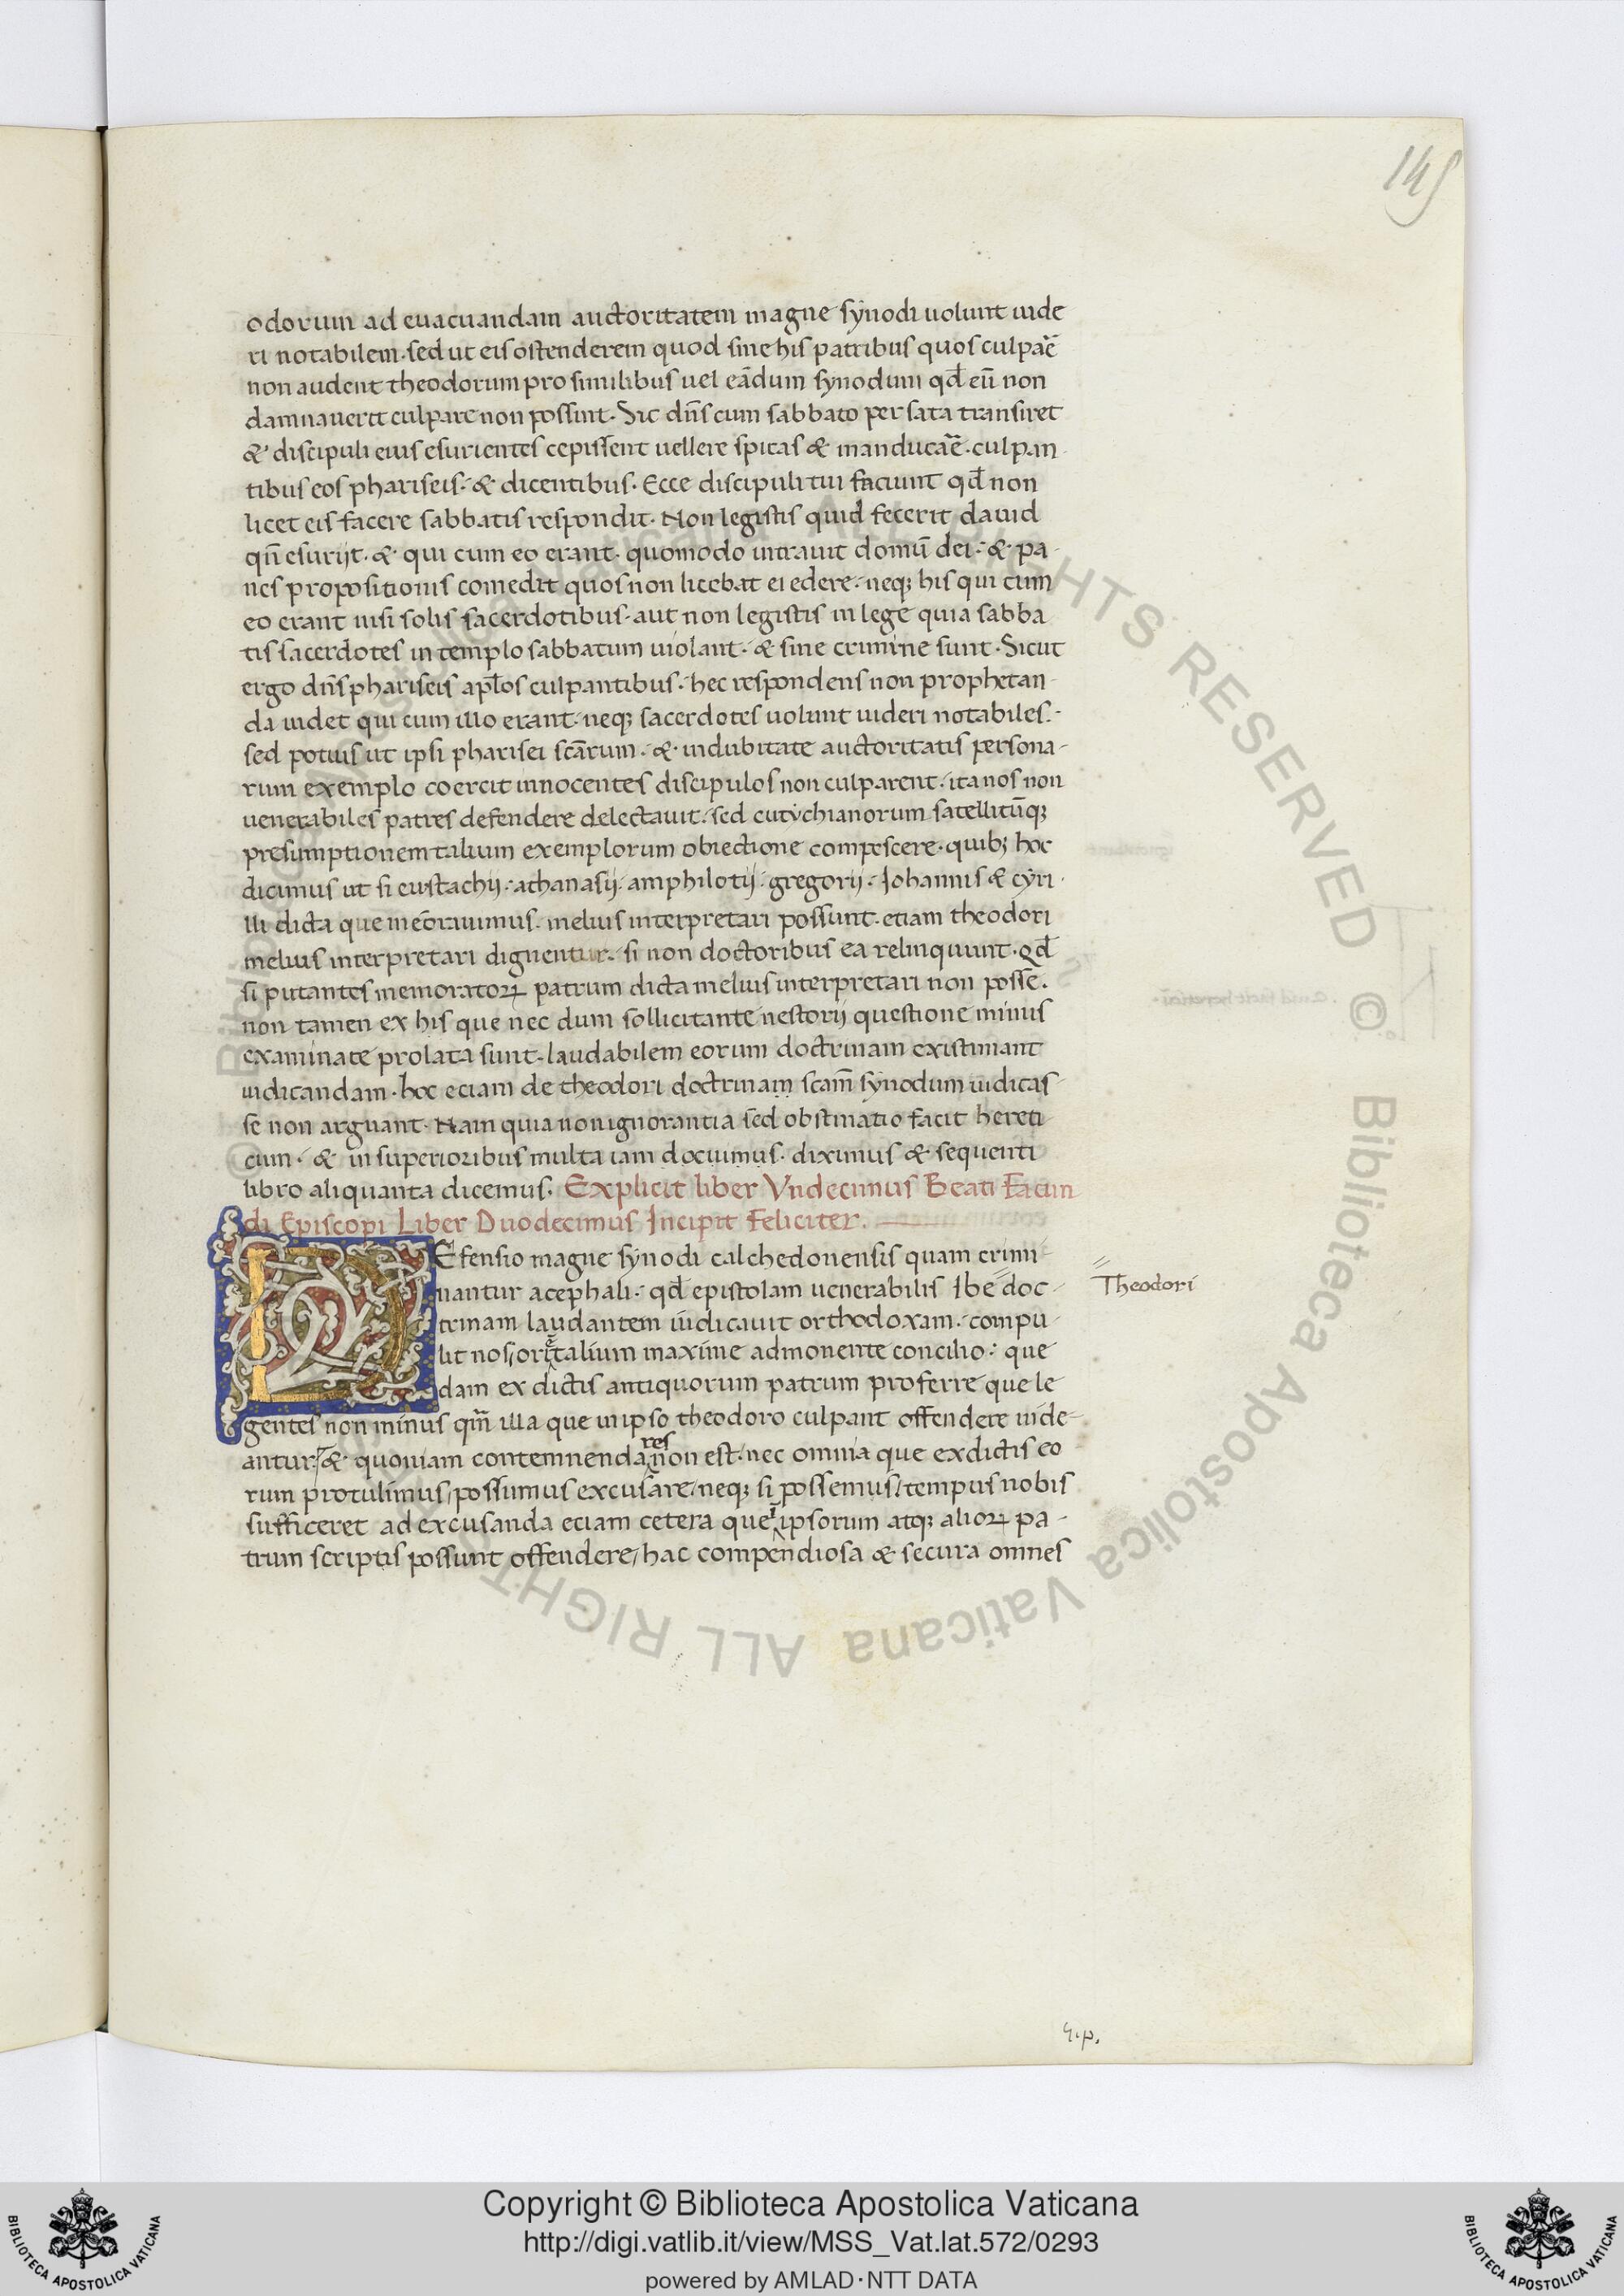 145
odorum ad euacuandam auctoritatem magne synodi uolunt uide
ri notabilem. sed ut eis ostenderem quod sine his patribus quos culpar̄e
non audent theodorum pro similibus uel eādum synodum qd̄ eū non
damnauerit culpare non possint. Sic dn̄s cum sabbato per sata transiret
& discipuli eius esurientes cepissent uellere spicas & manducar̄e. culpan
tibus eos phariseis. & dicentibus. Ecce discipuli tui faciunt qd̄ non
licet eis facere sabbatis respondit. Non legistis quid fecerit dauid
qn̄ esurijt. & qui cum eo erant. quomodo intrauit domū dei. & pa-
nes propositionis comedit quos non licebat ei edere. neq; his qui cum
eo erant nisi solis sacerdotibus. aut non legistis in lege quia sabba
tis sacerdotes in templo sabbatum uiolant. & sine crimine sunt. Sicut
ergo dn̄s phariseis apl̄os culpantibus. hec respondens non prophetan-
da uidet qui cum illo erant. neq; sacerdotes uolunt uideri notabiles.
sed potius ut ipsi pharisei scārum. & indubitate auctoritatis persona-
rum exemplo coercit innocentes discipulos non culparent. ita nos non
uenerabiles patres defendere delectauit. sed eutychianorum satellitūq;
presumptionem talium exemplorum obiectione compescere. quib; hoc
dicimus ut si eustachij. athanasij. amphilotij. gregorij. Iohannis & cyri
lli dicta que meōrauimus. melius interpretari possunt. etiam theodori
melius interpretari dignentur. si non doctoribus ea relinquunt. qd̄
si putantes memoratoꝝ patrum dicta melius interpretari non posse.
non tamen ex his que nec dum sollicitante nestorij questione minus
examinate prolata sunt. laudabilem eorum doctrinam existimant
iudicandam. hoc eciam de theodori doctrinam scam̄ synodum iudicas-
se non arguant. Nam quia non ignorantia sed obstinatio facit hereti
cum. & in superioribus multa iam docuimus. diximus & sequenti
libro aliquanta dicemus. Explicit liber Vndecimus Beati Facun
di Episcopi Liber Duodecimus Incipit Feliciter.
DEfensio magne synodi calchedonensis quam crimi-
nantur acephali. qd̄ epistolam uenerabilis Ibe doc-
Theodori
trinam laudantem iudicauit orthodoxam. compu
lit nos orientalium maxime admonente concilio: que
dam ex dictis antiquorum patrum proferre que le
gentes non minus qm̄ illa que in ipso theodoro culpant offendere uide-
antur. & quoniam contemnenda res non est. nec omnia que ex dictis eo
rum protulimus, possumus excusare, neq; si possemus, tempus nobis
sufficeret ad excusanda eciam cetera que ipsorum atq; alioꝝ pa-
trum scriptis possunt offendere, hac compendiosa & secura omnes
Copyright © Biblioteca Apostolica Vaticana
http://digi.vatlib.it/view/MSS_Vat.lat.572/0293
powered by AMLAD·NTT DATA
BIBLIOTECA APOSTOLICA VATICANA
BIBLIOTECA APOSTOLICA VATICANA
© Biblioteca Apostolica Vaticana ALL RIGHTS RESERVED
© Biblioteca Apostolica Vaticana ALL RIGHTS